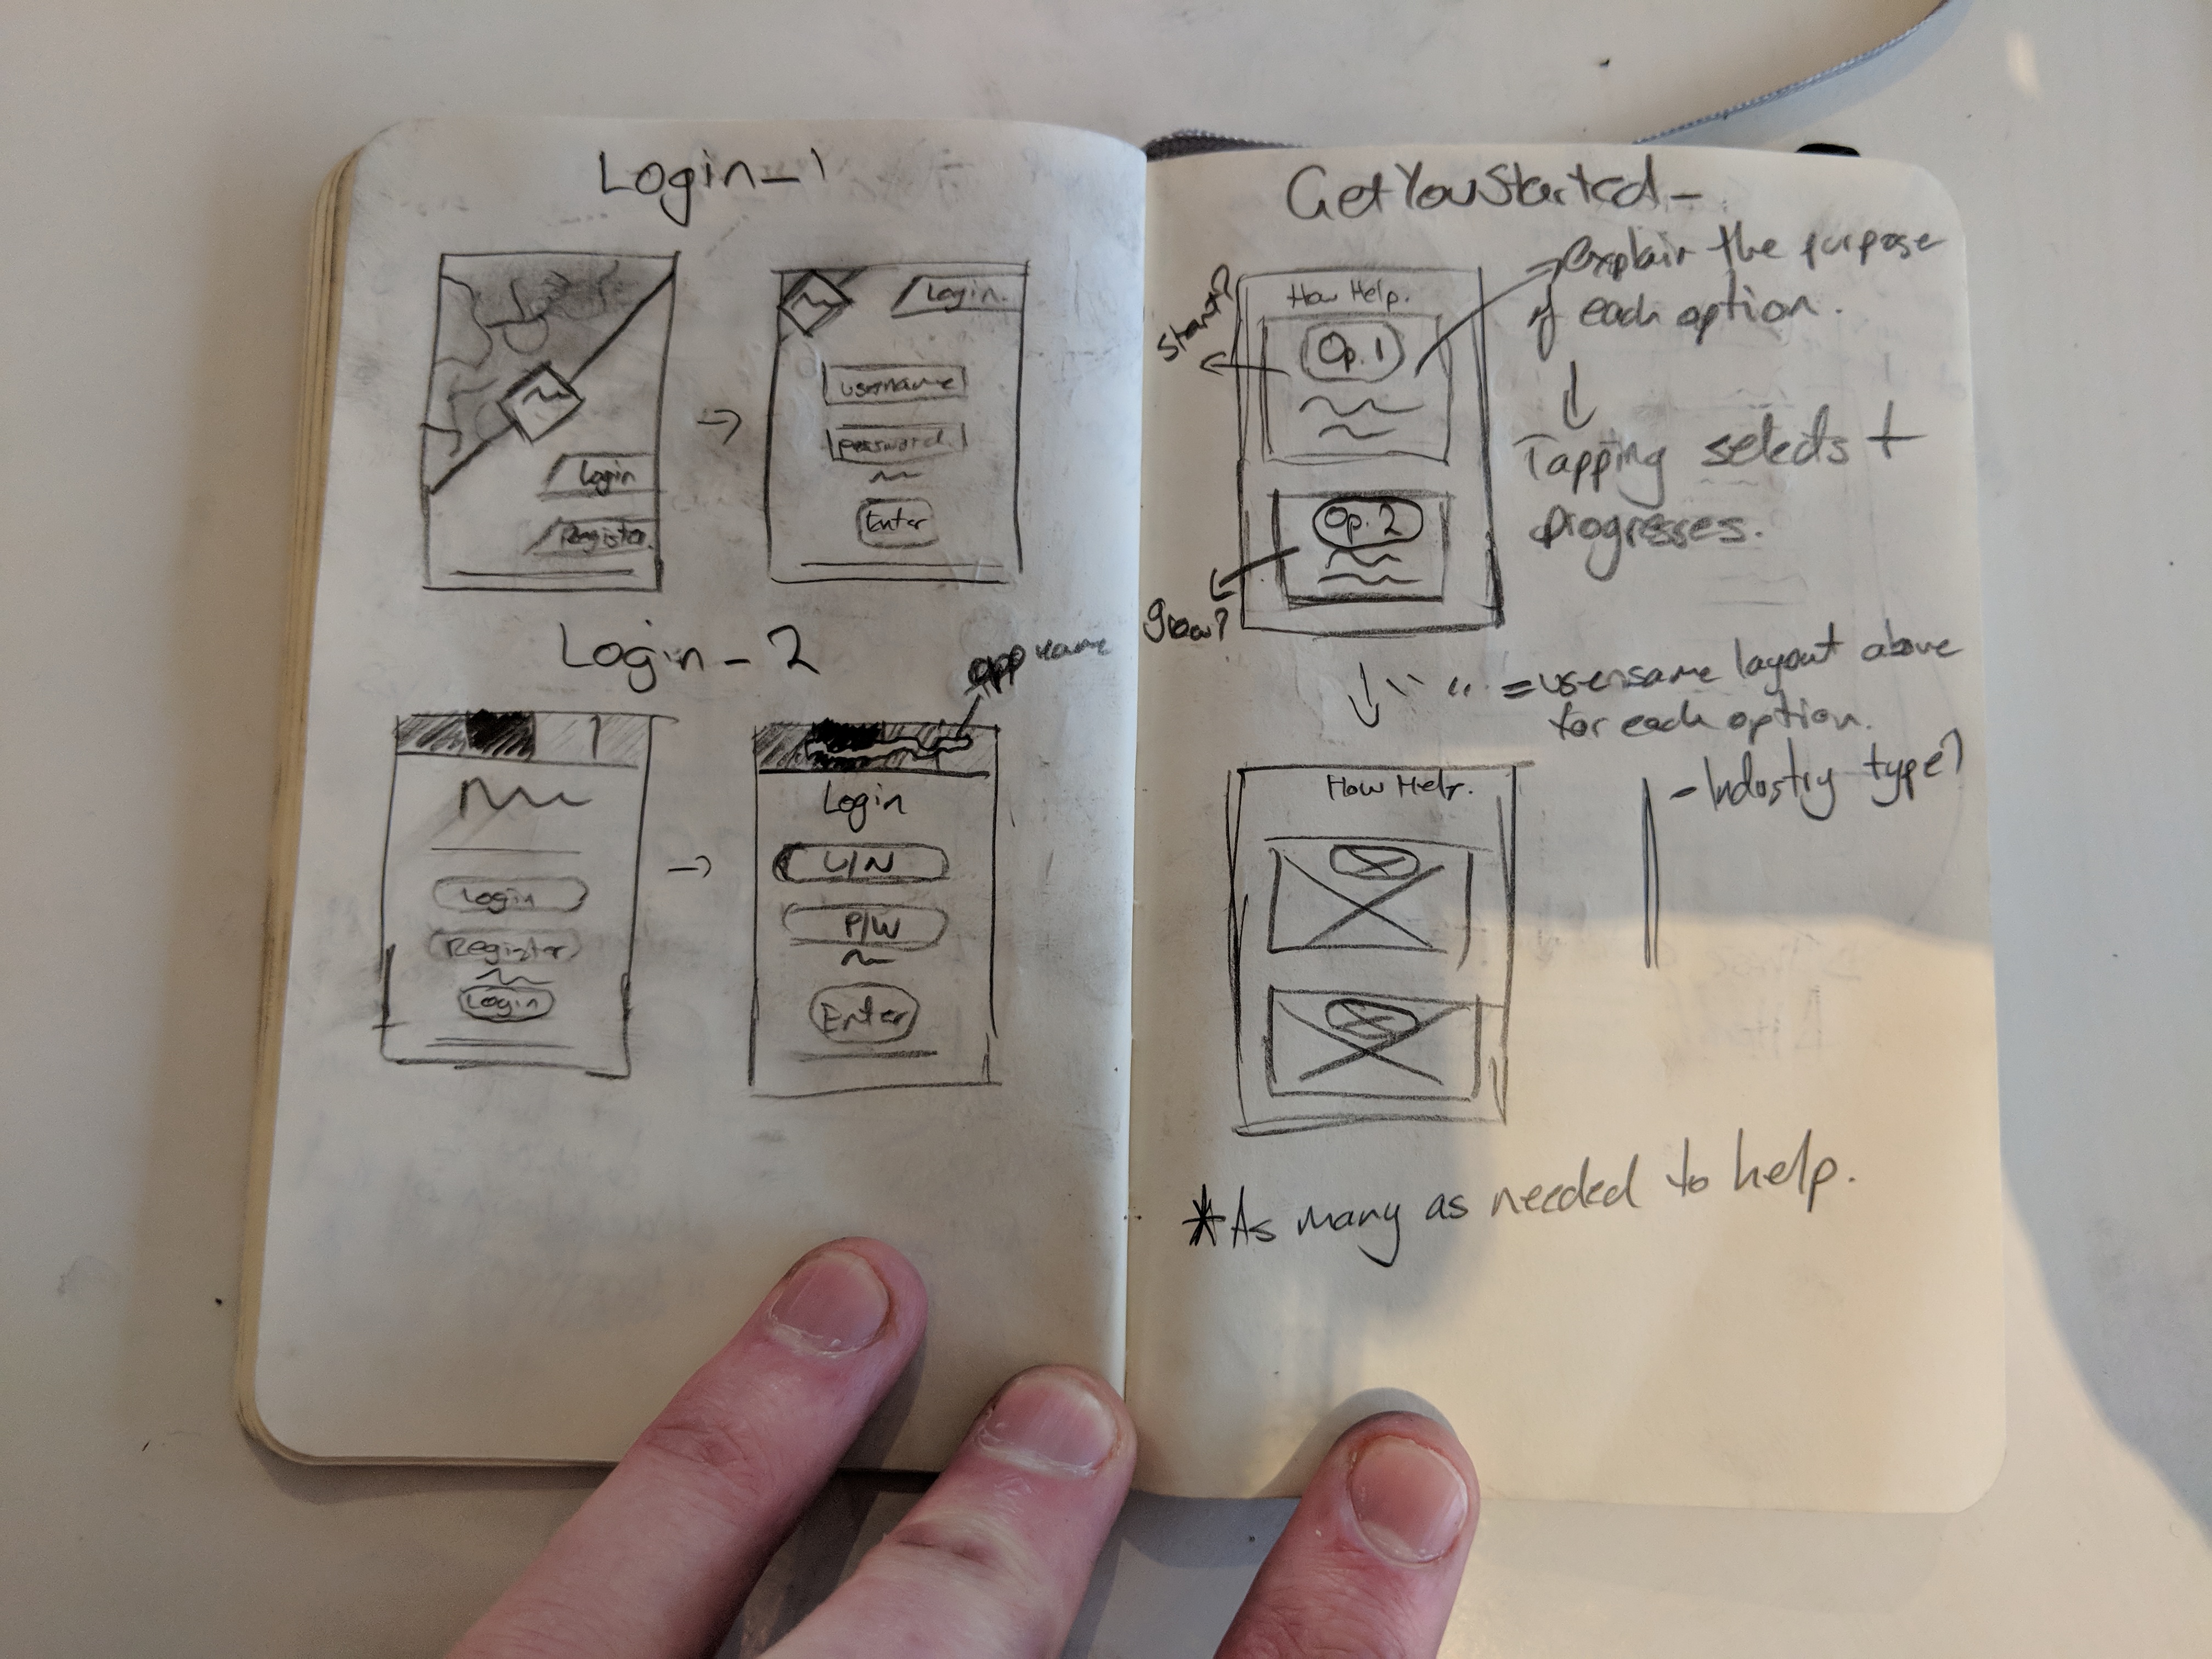 Login - 1
Login
Register
Login.
username
password
Enter
Login - 2
app name
Login
Register
Login
Login
U/N
P/W
Enter
GetYouStarted -
How Help.
Op. 1
Op. 2
Start?
grow?
Explain the purpose
of each option.
Tapping selects +
progresses.
same layout above
for each option.
- Industry type?
How Help.
*As many as needed to help.